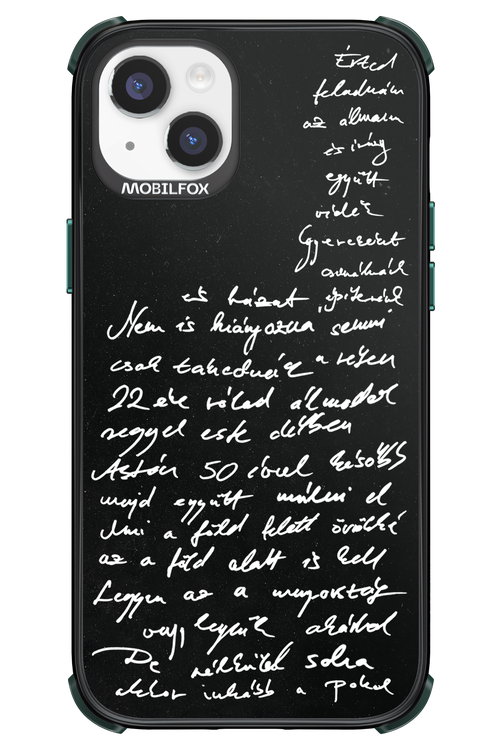 MOBILFOX
Érted
feladnám
az álmaim
és irány
együtt
vidék
Gyerekeket
csinálnánk
és házat építenénk
Nem is hiányozna semmi
csak
22 éve rólad álmodok
reggel este délben
Aztán 50 évvel később
majd együtt múlni el
Ami a föld felett örökké
az a föld alatt is kell
Legyen az a mennyország
vagy legyünk akárhol
De nélküled soha
akkor inkább a Pokol